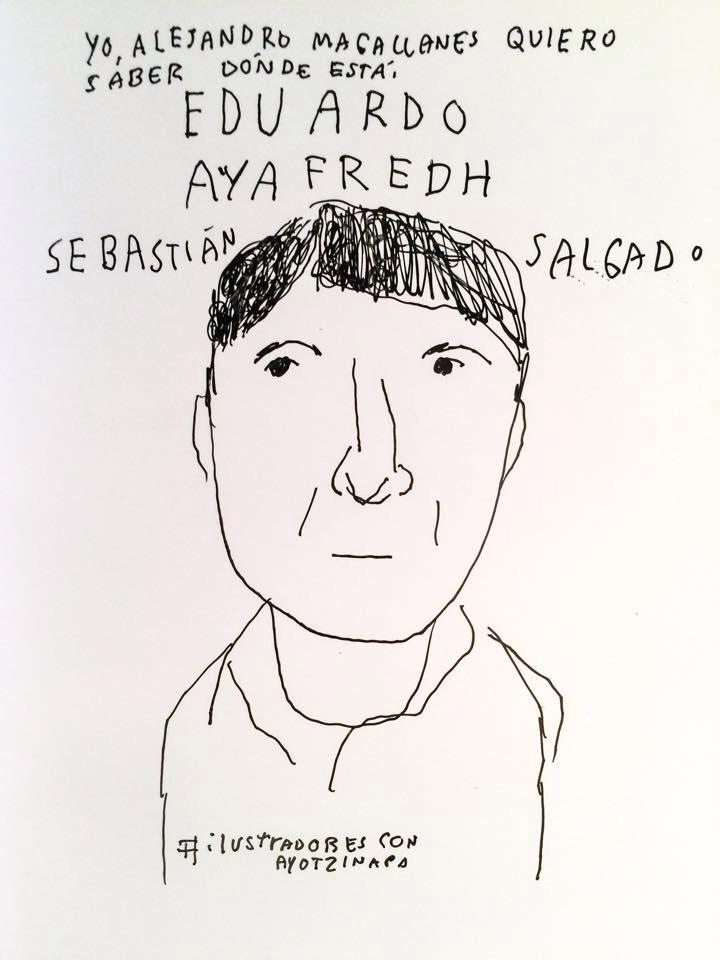 YO, ALEJANDRO MAGALLANES QUIERO
SABER DÓNDE ESTÁ:
EDUARDO
AYA FREDH
SEBASTIÁN SALGADO
#ilUSTRADORES CON
AYOTZINAPA